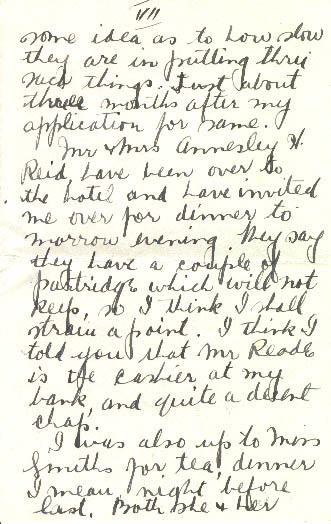 VII
some idea as to how slow
they are in putting thru
such things. Just about
three months after my
application for same.
Mr & Mrs Annesley H.
Reid have been over to
the hotel and have invited
me over for dinner to
morrow evening. They say
they have a couple of
partridge which will not
keep, so I think I shall
strain a point. I think I
told you that Mr Reade
is the cashier at my
bank, and quite a decent
chap.
I was also up to Miss
Smiths for tea, dinner
I mean, night before
last. Both she & her